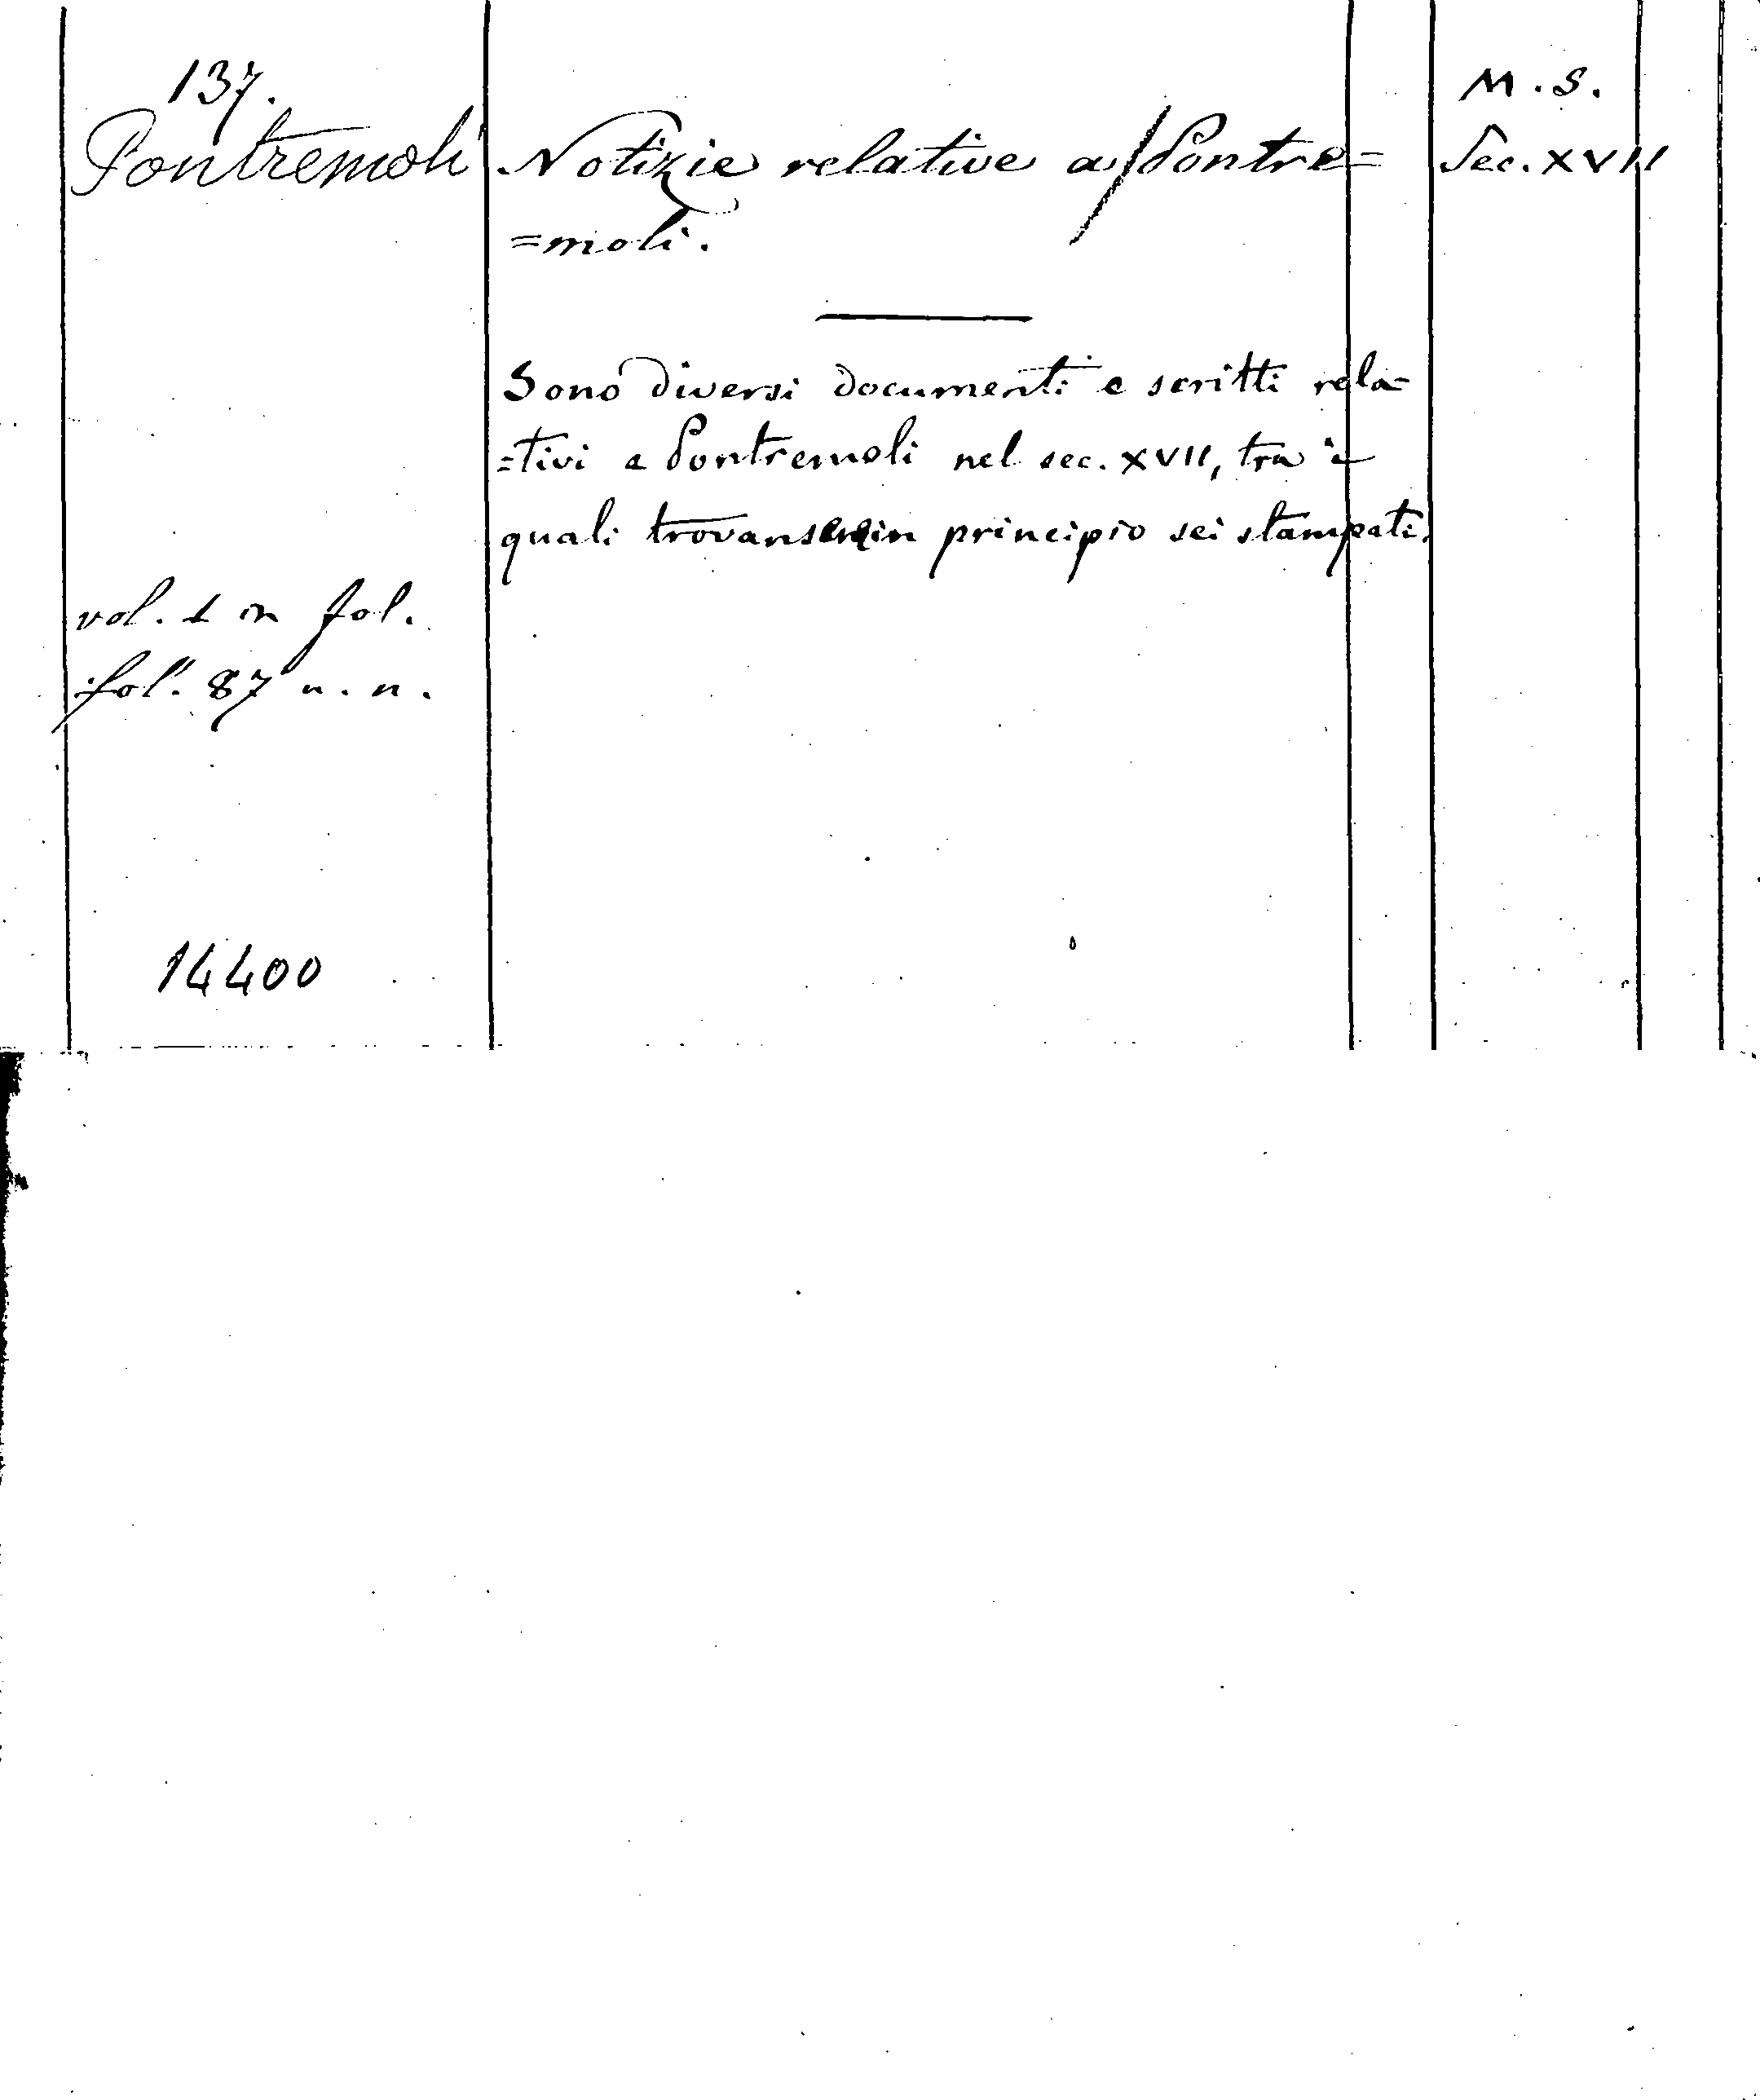 137.
Pontremoli
Notizie relative a/Pontre=
=moli.
M. S.
Sec. XVII
Sono diversi documenti e scritti rela=
=tivi a Pontremoli nel sec. XVII, tra i
quali trovansene in principio sei stampati.
vol. 1 in fol.
fol. 87 n. n.
14400